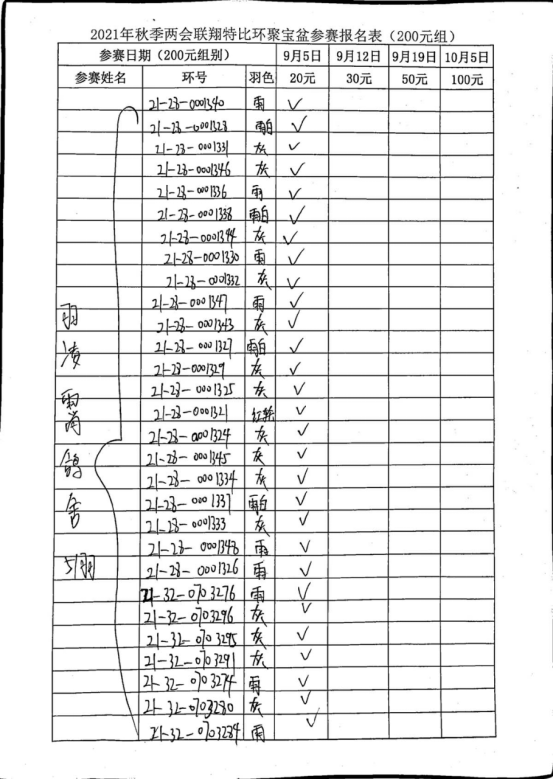 2021年秋季两会联翔特比环聚宝盆参赛报名表（200元组）
参赛日期（200元组别） 9月5日 9月12日 9月19日 10月5日
参赛姓名 环号 羽色 20元 30元 50元 100元
21-28-0001340 雨 ✓
21-28-0001328 雨白 ✓
21-28-0001331 灰 ✓
21-28-0001346 灰 ✓
21-28-0001336 雨 ✓
21-28-0001338 雨白 ✓
21-28-0001344 灰 ✓
21-28-0001330 雨 ✓
21-28-0001332 灰 ✓
21-28-0001347 雨 ✓
羽 21-28-0001343 灰 ✓
凌 21-28-0001327 雨白 ✓
21-28-0001329 灰 ✓
21-28-0001325 灰 ✓
21-28-0001321 ✓
21-28-0001324 灰 ✓
鸽 21-28-0001345 灰 ✓
21-28-0001334 灰 ✓
舍 21-28-0001337 雨白 ✓
21-28-0001333 灰 ✓
21-28-0001348 雨 ✓
51羽 21-28-0001326 雨 ✓
21-32-0703276 雨 ✓
21-32-0703296 灰 ✓
21-32-0703295 灰 ✓
21-32-0703291 灰 ✓
21-32-0703274 雨 ✓
21-32-0703280 灰 ✓
21-32-0703284 雨 ✓